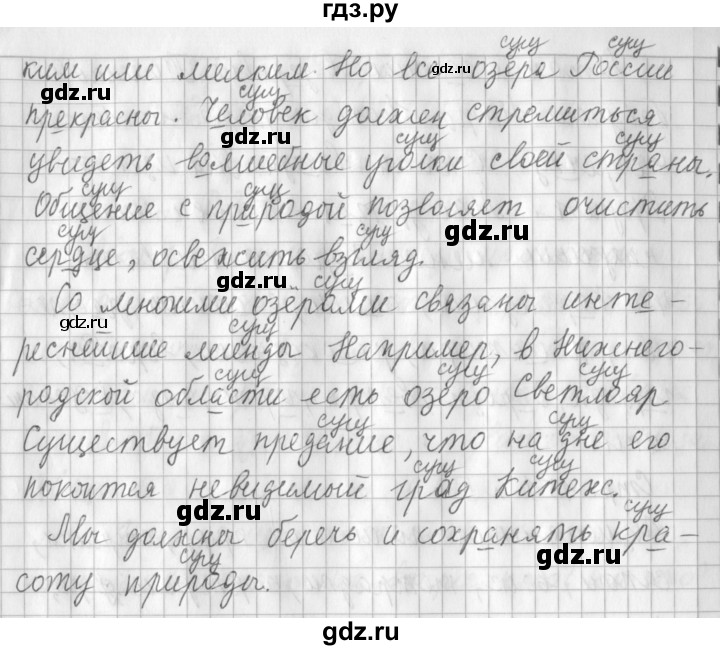 гдз.ру
сущ сущ
ким или мелким. Но все озёра России
gdz.ru сущ
прекрасны. Человек должен стремиться
gdz.ru сущ сущ
увидеть волшебные уголки своей страны.
сущ сущ
Общение с природой позволяет очистить
сущ сущ gdz.ru
сердце, освежить взгляд.
gdz.ru сущ
Со многими озёрами связаны инте-
gdz.ru сущ
реснейшие легенды Например, в Нижнего-
сущ сущ сущ
родской области есть озеро Светлояр
сущ сущ
Существует предание, что на дне его
gdz.ru сущ сущ
покоится невидимый град Китеж.
gdz.ru сущ
Мы должны беречь и сохранять кра-
сущ gdz.ru
соту природы.
gdz.ru